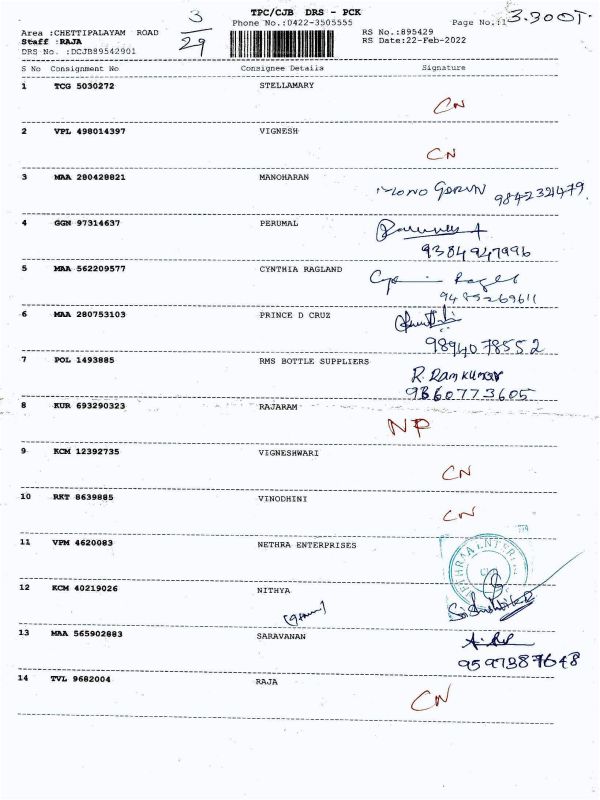 3
29
TPC/CJB DRS - PCK
Phone No.:0422-3505555
Page No.:1
3.300T.
Area :CHETTIPALAYAM ROAD
RS No.:895429
Staff :RAJA
RS Date:22-Feb-2022
DRS No. :DCJB89542901
S No Consignment No Consignee Details Signature
1 TCG 5030272 STELLAMARY
CN
2 VPL 498014397 VIGNESH
CN
3 MAA 280428821 MANOHARAN
9842321479
4 GGN 97314637 PERUMAL
9384947996
5 MAA 562209577 CYNTHIA RAGLAND
9485269611
6 MAA 280753103 PRINCE D CRUZ
9894078552
7 POL 1493885 RMS BOTTLE SUPPLIERS
R. Ramkumar
9360773605
8 KUR 693290323 RAJARAM
NP
9 KCM 12392735 VIGNESHWARI
CN
10 RKT 8639885 VINODHINI
CN
11 VPM 4620083 NETHRA ENTERPRISES
12 KCM 40219026 NITHYA
13 MAA 565902883 SARAVANAN
9597387648
14 TVL 9682004 RAJA
CN